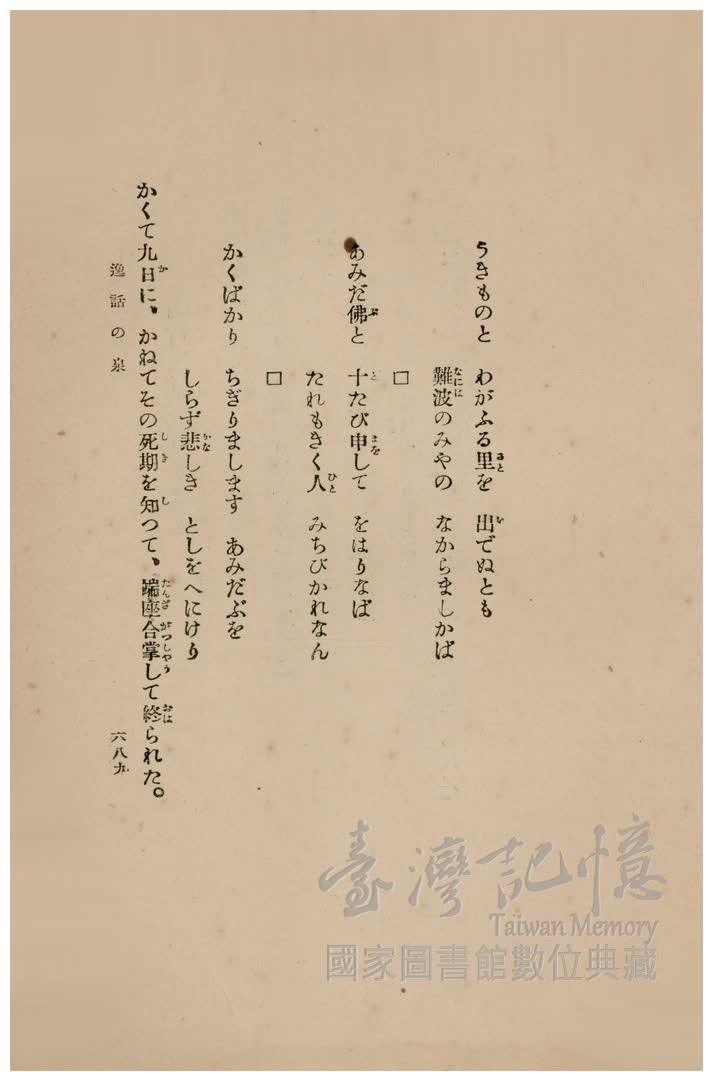 うきものと　わがふる里を　出でぬとも
難波のみやの　なからましかば
□
あみだ佛と　十たび申して　をはりなば
たれもきく人　みちびかれなん
□
かくばかり　ちぎりまします　あみだぶを
しらず悲しき　としをへにけり
かくて九日に、かねてその死期を知つて、端座合掌して終られた。
逸話の泉
六八九
臺灣記憶
Taiwan Memory
國家圖書館數位典藏